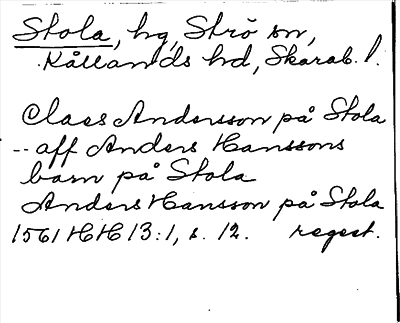 Stola, hg, Strö sn,
Kållands hd, Skarab. l.
Claes Andersson på Stola
-- aff Anders Hanssons
barn på Stola
Anders Hansson på Stola
1561 HH 13:1, s. 12. regest.